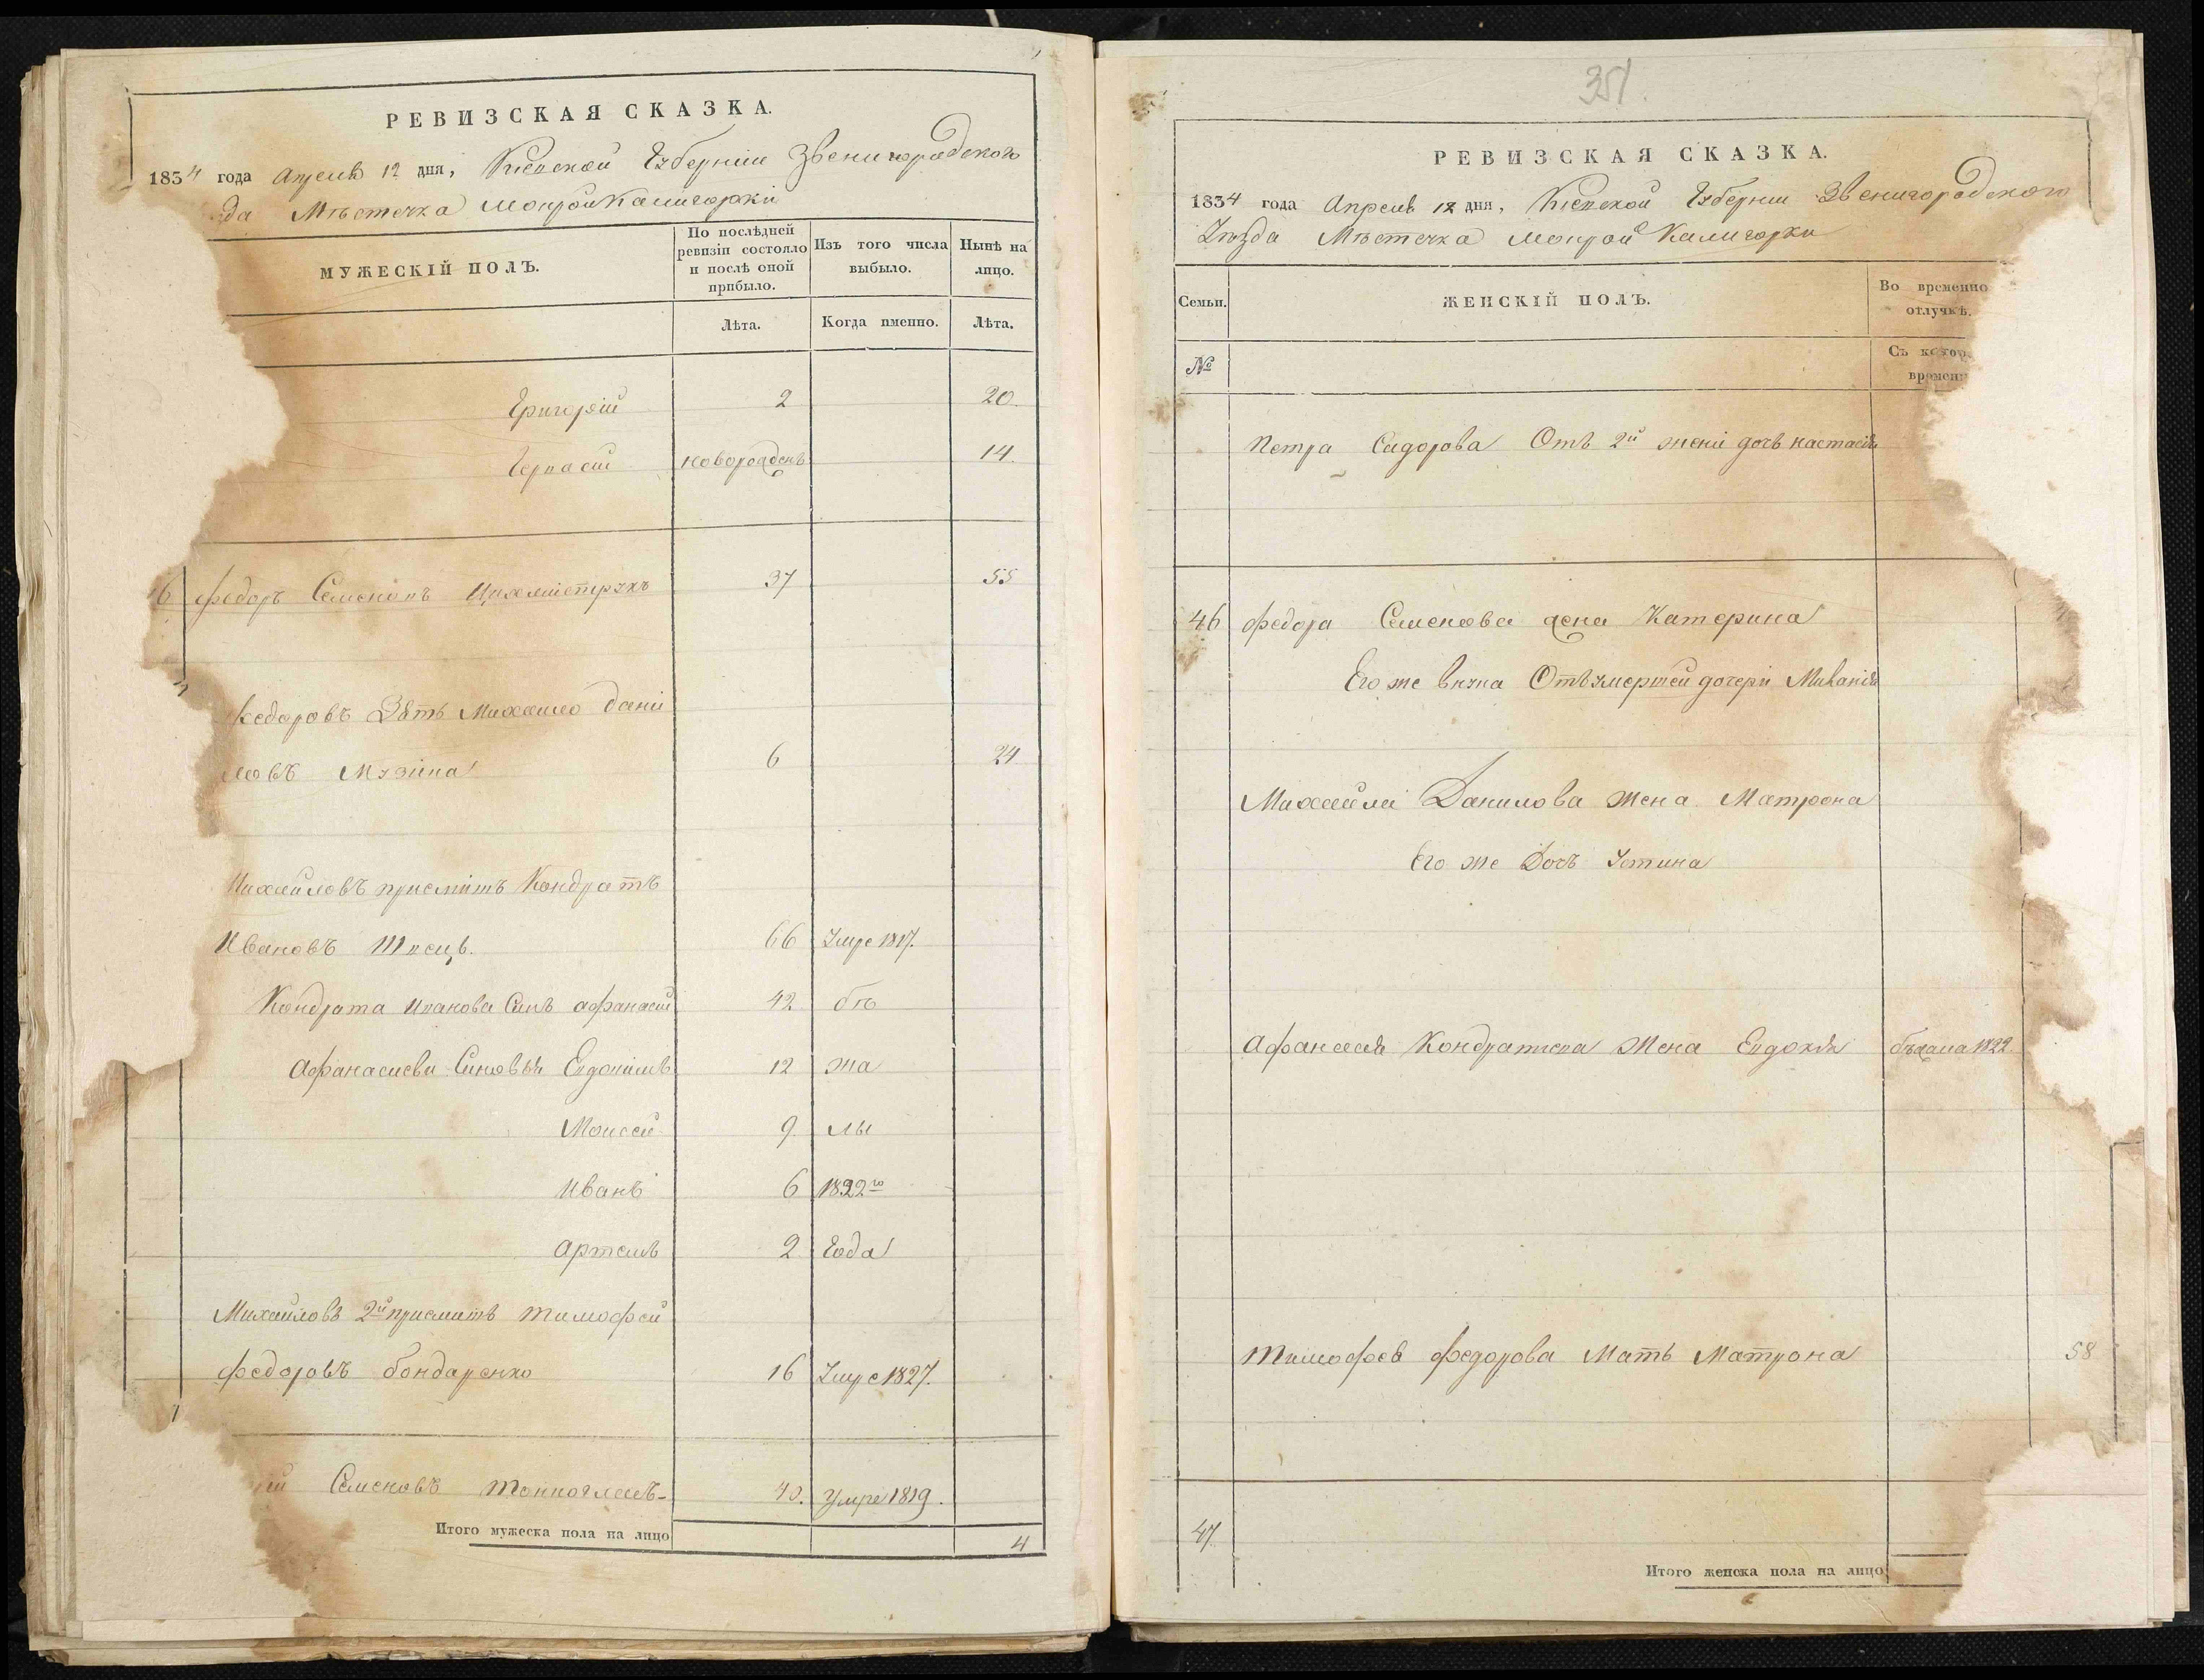 РЕВИЗСКАЯ СКАЗКА.
1834 года Апреля 12 дня, Кіевской Губерніи Звенигородского
да Мѣстечка Мокрой Калигорки
МУЖЕСКІЙ ПОЛЪ.
По послѣдней ревизіи состояло и послѣ оной прибыло.
Изъ того числа выбыло.
Нынѣ на лицо.
Лѣта.
Когда именно.
Лѣта.
Григорій 2 20.
Герасим новорожденъ 14.
6 Федоръ Семеновъ 37 55
Федоровъ Зять Михайло Дани
ловъ Музика 6 24
Михайловъ приемитъ Кондратъ
Ивановъ Швецъ. 66 Умре 1817.
Кондрата Иванова Синъ Афанасий 42 бѣ
Афанасиеви Синовья Евдокимъ 12 жа
Моисей 9 лы
Иванъ 6 1822го
Артемъ 2 Года
Михайловъ 2й приемитъ Тимофей
Федоровъ Бондаренко 16 Умре 1827.
ий Семеновъ 40. Умре 1819.
Итого мужеска пола на лицо 4
351.
РЕВИЗСКАЯ СКАЗКА.
1834 года Апреля 12 дня, Кіевской Губернии Звенигородского
Уѣзда Мѣстечка Мокрой Калигорки
Семьи.
ЖЕНСКІЙ ПОЛЪ.
Во временно отлучкѣ.
№
Съ котор времени
Петра Сидорова Отъ 2й жени дочъ Настасія
46 Федора Семенова жена Катерина
Его же внука Отъ умершей дочери
Михайлы Данилова Жена Матрона
Его же Дочъ Устина
Афанасия Кондратиева Жена Евдокия бѣжала 1822.
Тимофея Федорова Мать Матрона 58
47
Итого женска пола на лицо